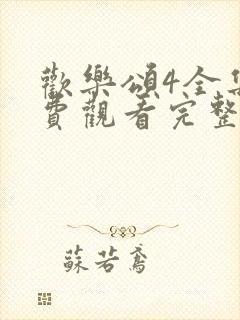 歡樂頌4全集
費觀看完整
蘇若鳶